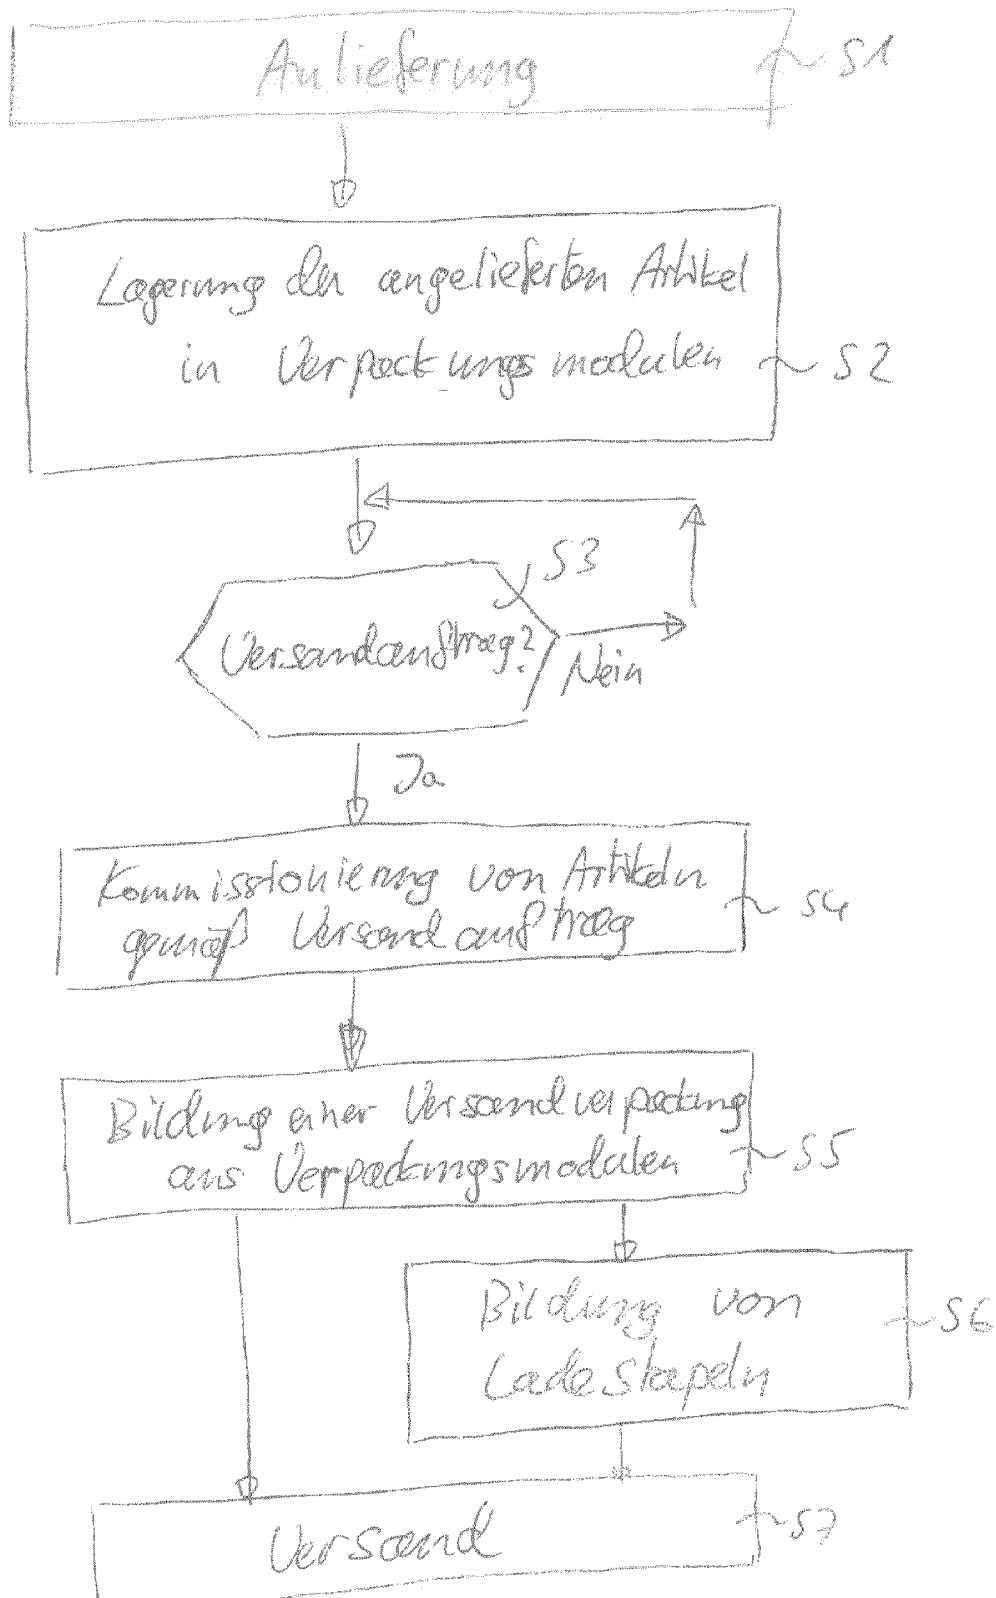 Anlieferung
S1
Lagerung der angelieferten Artikel
in Verpackungsmodulen
S2
S3
Versandauftrag?
Nein
Ja
Kommissionierung von Artikeln
gemäß Versandauftrag
S4
Bildung einer Versandverpackung
aus Verpackungsmodulen
S5
Bildung von
Ladestapeln
S6
Versand
S7